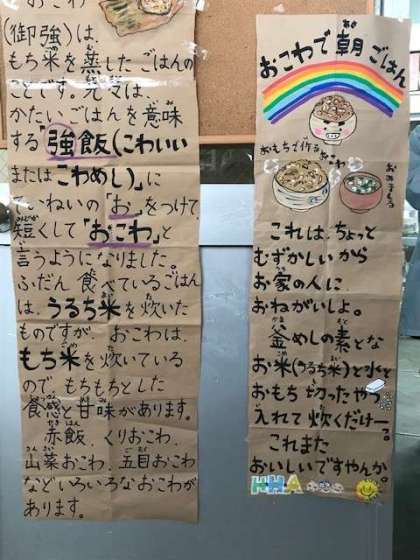 (御強)は、
もち米を蒸したごはんの
ことです。元々は、
かたいごはんを意味
する「強飯(こわいい
またはこわめし)」に
ていねいの「お」をつけて
短くして「おこわ」と
言うようになりました。
ふだん食べているごはん
は、うるち米を炊いた
ものですが、おこわは、
もち米を炊いている
ので、もちもちとした
食感と甘味があります。
赤飯、くりおこわ、
山菜おこわ、五目おこわ
などいろいろなおこわが
あります。
おこわで朝ごはん
おもちで作るおこわ
おみそしる
これは、ちょっと
むずかしいから
お家の人に
おねがいしよ。
釜めしの素とな
お米(うるち米)と水と
おもち切ったやつ
入れて炊くだけー。
これまた
おいしいですやんか。
HHA